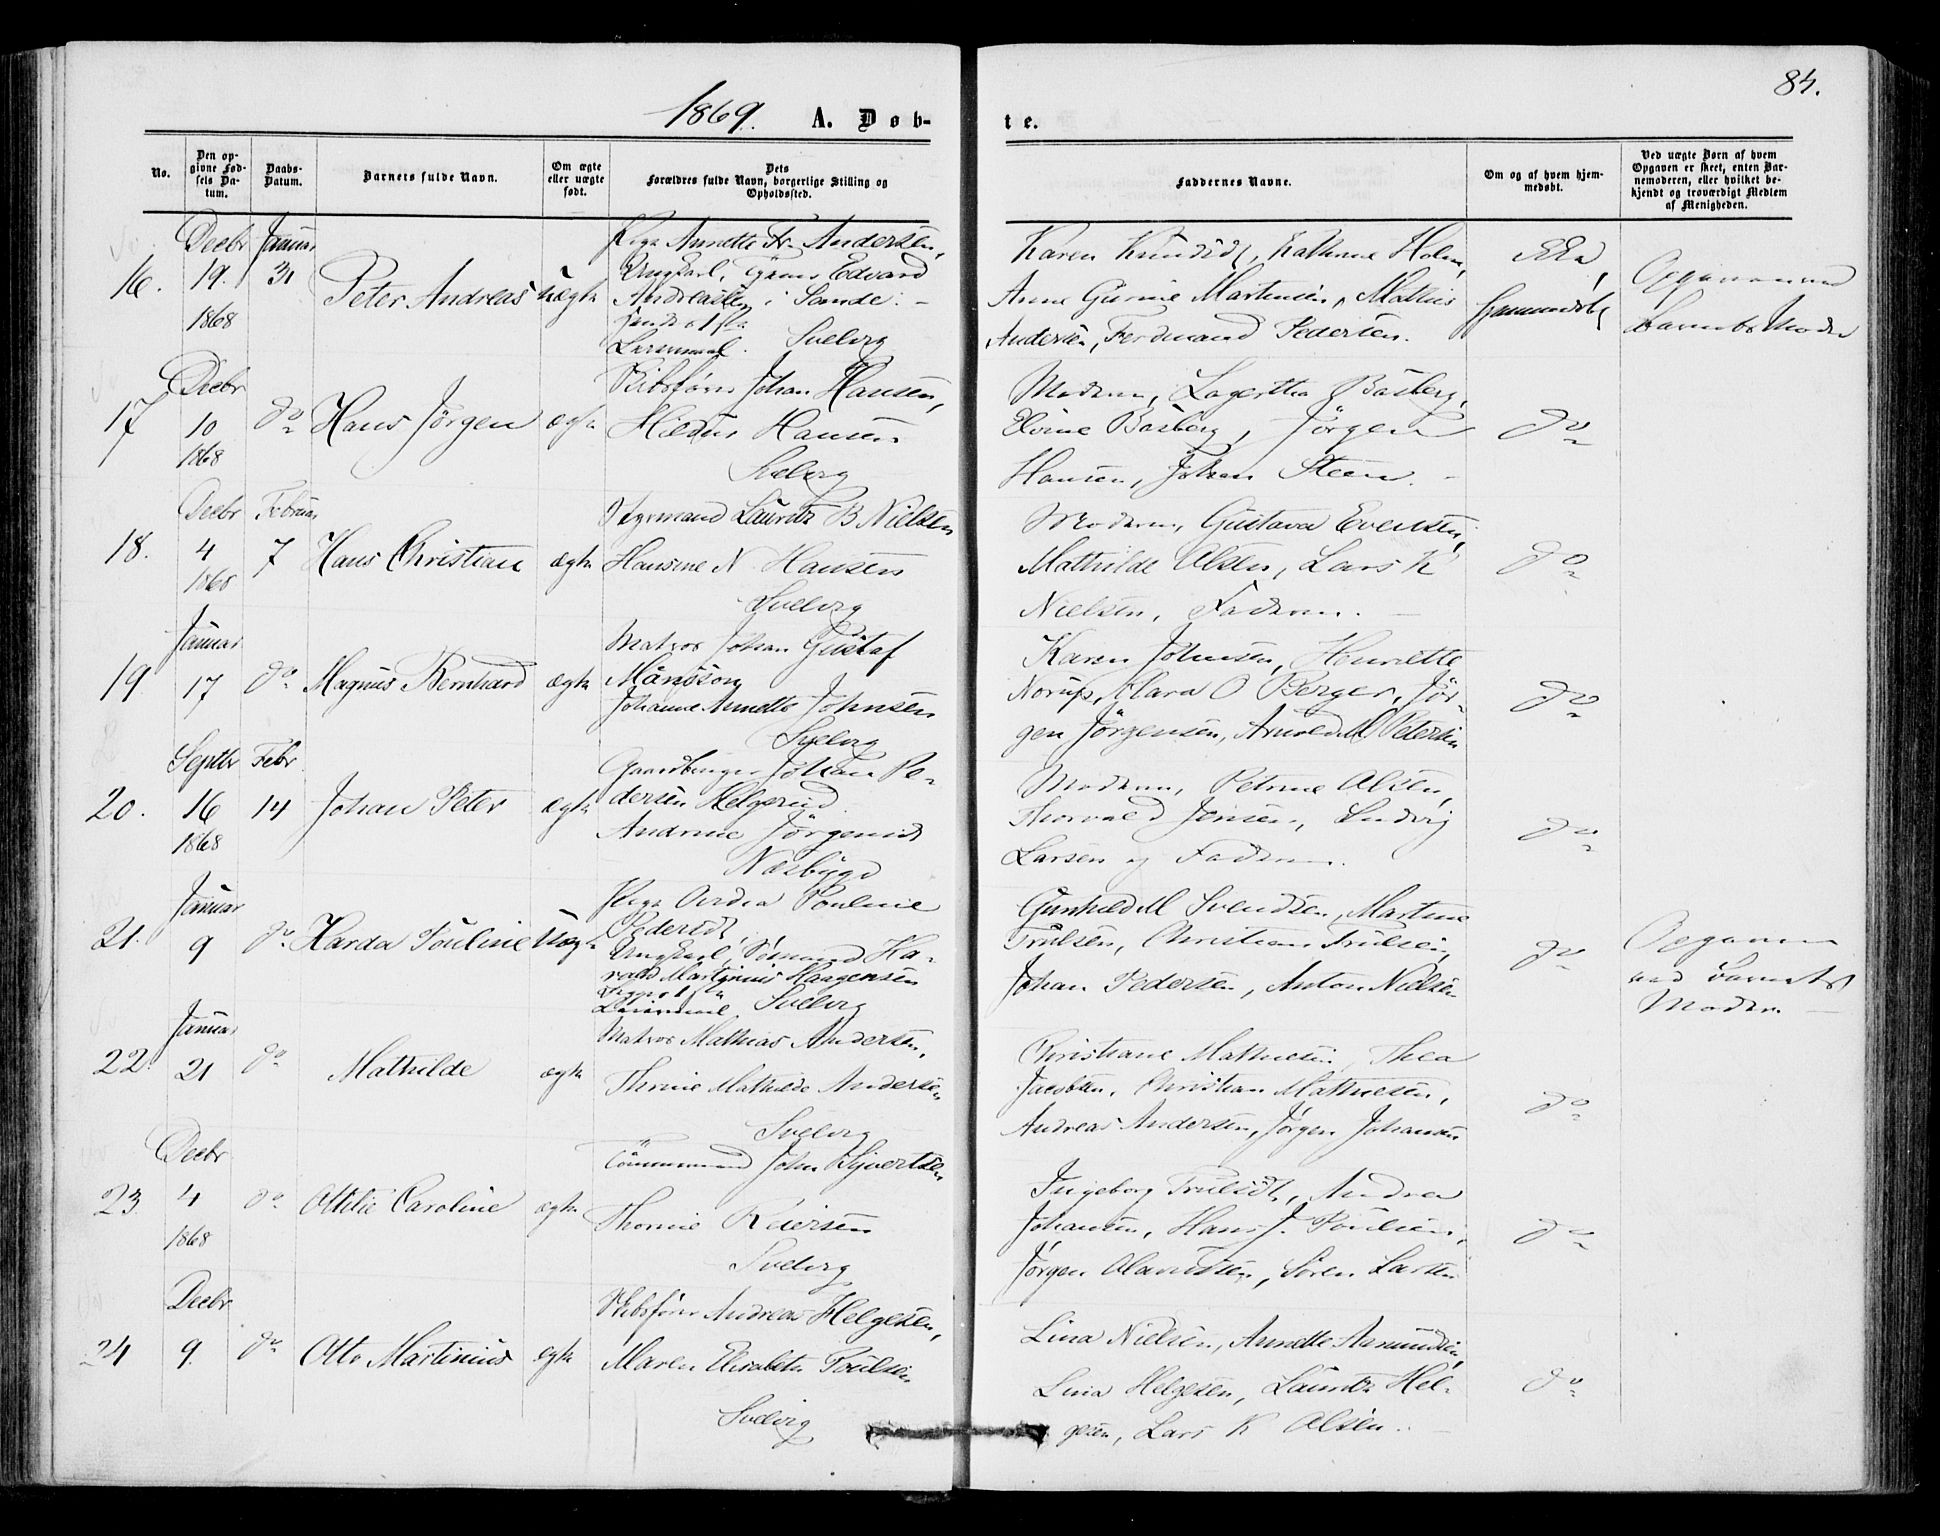 84.
1869. A. Døb-
te.
No.
Den op-
givne Fød-
sels Da-
tum.
Daabs-
Datum.
Barnets fulde Navn.
Om ægte
eller uægte
født.
Dets
Forældres fulde Navn, borgerlige Stilling og
Opholdssted.
Faddernes Navne.
Om og af hvem hjem-
medøbt.
Ved uægte Børn af hvem
Opgaven er skeet, enten Bar-
nemoderen, eller hvilket be-
kjendt og troværdigt Medlem
af Menigheden.
16.
Decbr
19.
1868
Januar
31
Peter Andreas
uægte
Pige Annette Fr. Andersen,
Ungkarl, Edvard
Andreasen i Sande. -
1ste
Svelvig
Karen Knudsdt, Kathrine Holm,
Anne Gurine Martinsen, Mathis
Andersen, Ferdinand Pedersen.
Ikke
hjemmedøbt
Opgaven ved
barnets Moder
17
Decbr
10
1868
do
Hans Jörgen
ægte
Skibsfører Johan Hansen,
Hansen
Svelvig
Moderen, Lagertha Basberg,
Elvine Basberg, Jörgen
Hansen, Johan Steen. -
do
18.
Decbr
4
1868
Februar
7
Hans Christian
ægte
Styrmand Lauritz B Nielsen
Hansine N Hansen
Svelvig
Moderen, Gustava Evensen,
Mathilde Olsen, Lars K
Nielsen, Faderen. -
do
19
Januar
17
do
Magnus Bernhard
ægte
Matros Johan Gustaf
Månsson
Johanne Annette Johnsen
Svelvig
Karen Johnsen, Henriette
Norup, Klara O Berger, Jör-
gen Jörgensen, Arnold M Petersen
do
20.
Septbr
16
1868
Febr
14
Johan Peter
ægte
Gaardbruger Johan Pe-
dersen Helgerud
Andrine Jörgensdt
Næsbygd
Moderen, Petrine Olsen,
Thorvald Jensen, Ludvig
Larsen og Faderen.
do
21.
Januar
9
do
Harda Pouline
Uægte
Pige Andrea Pouline
Pedersdt,
Ungkarl, Sømand Ha-
rald Martinius Haagensen
1ste
Leiermaal Svelvig
Gunhild M Svendsen, Martine
Trulsen, Christian Trulsen,
Johan Pedersen, Anton Nielsen
do
Opgaven
ved barnets
Moder. -
22.
Januar
21
do
Mathilde
ægte
Matros Mathias Andersen,
Thrine Mathilde Andersen
Svelvig
Christiane Mathiesen, Thea
Jacobsen, Christian Mathiesen,
Andreas Andersen, Jörgen Johansen
do
23.
Decbr
4
1868
do
Ottilie Caroline
ægte
Tömmermand John Syvertsen
Thorine Reiersen
Svelvig
Ingeborg Trulsdt, Andrea
Johansen, Hans J. Poulsen,
Jörgen Olavesen, Sören Larsen
do
24
Decbr
9.
do
Otto Martinius
ægte
Skibsfører Andreas Helgesen,
Maren Elisabeth Poulsen
Svelvig
Lina Nielsen, Annette Asmundsen,
Lina Helgesen, Lauritz Hel-
gesen, Lars K Olsen. -
do